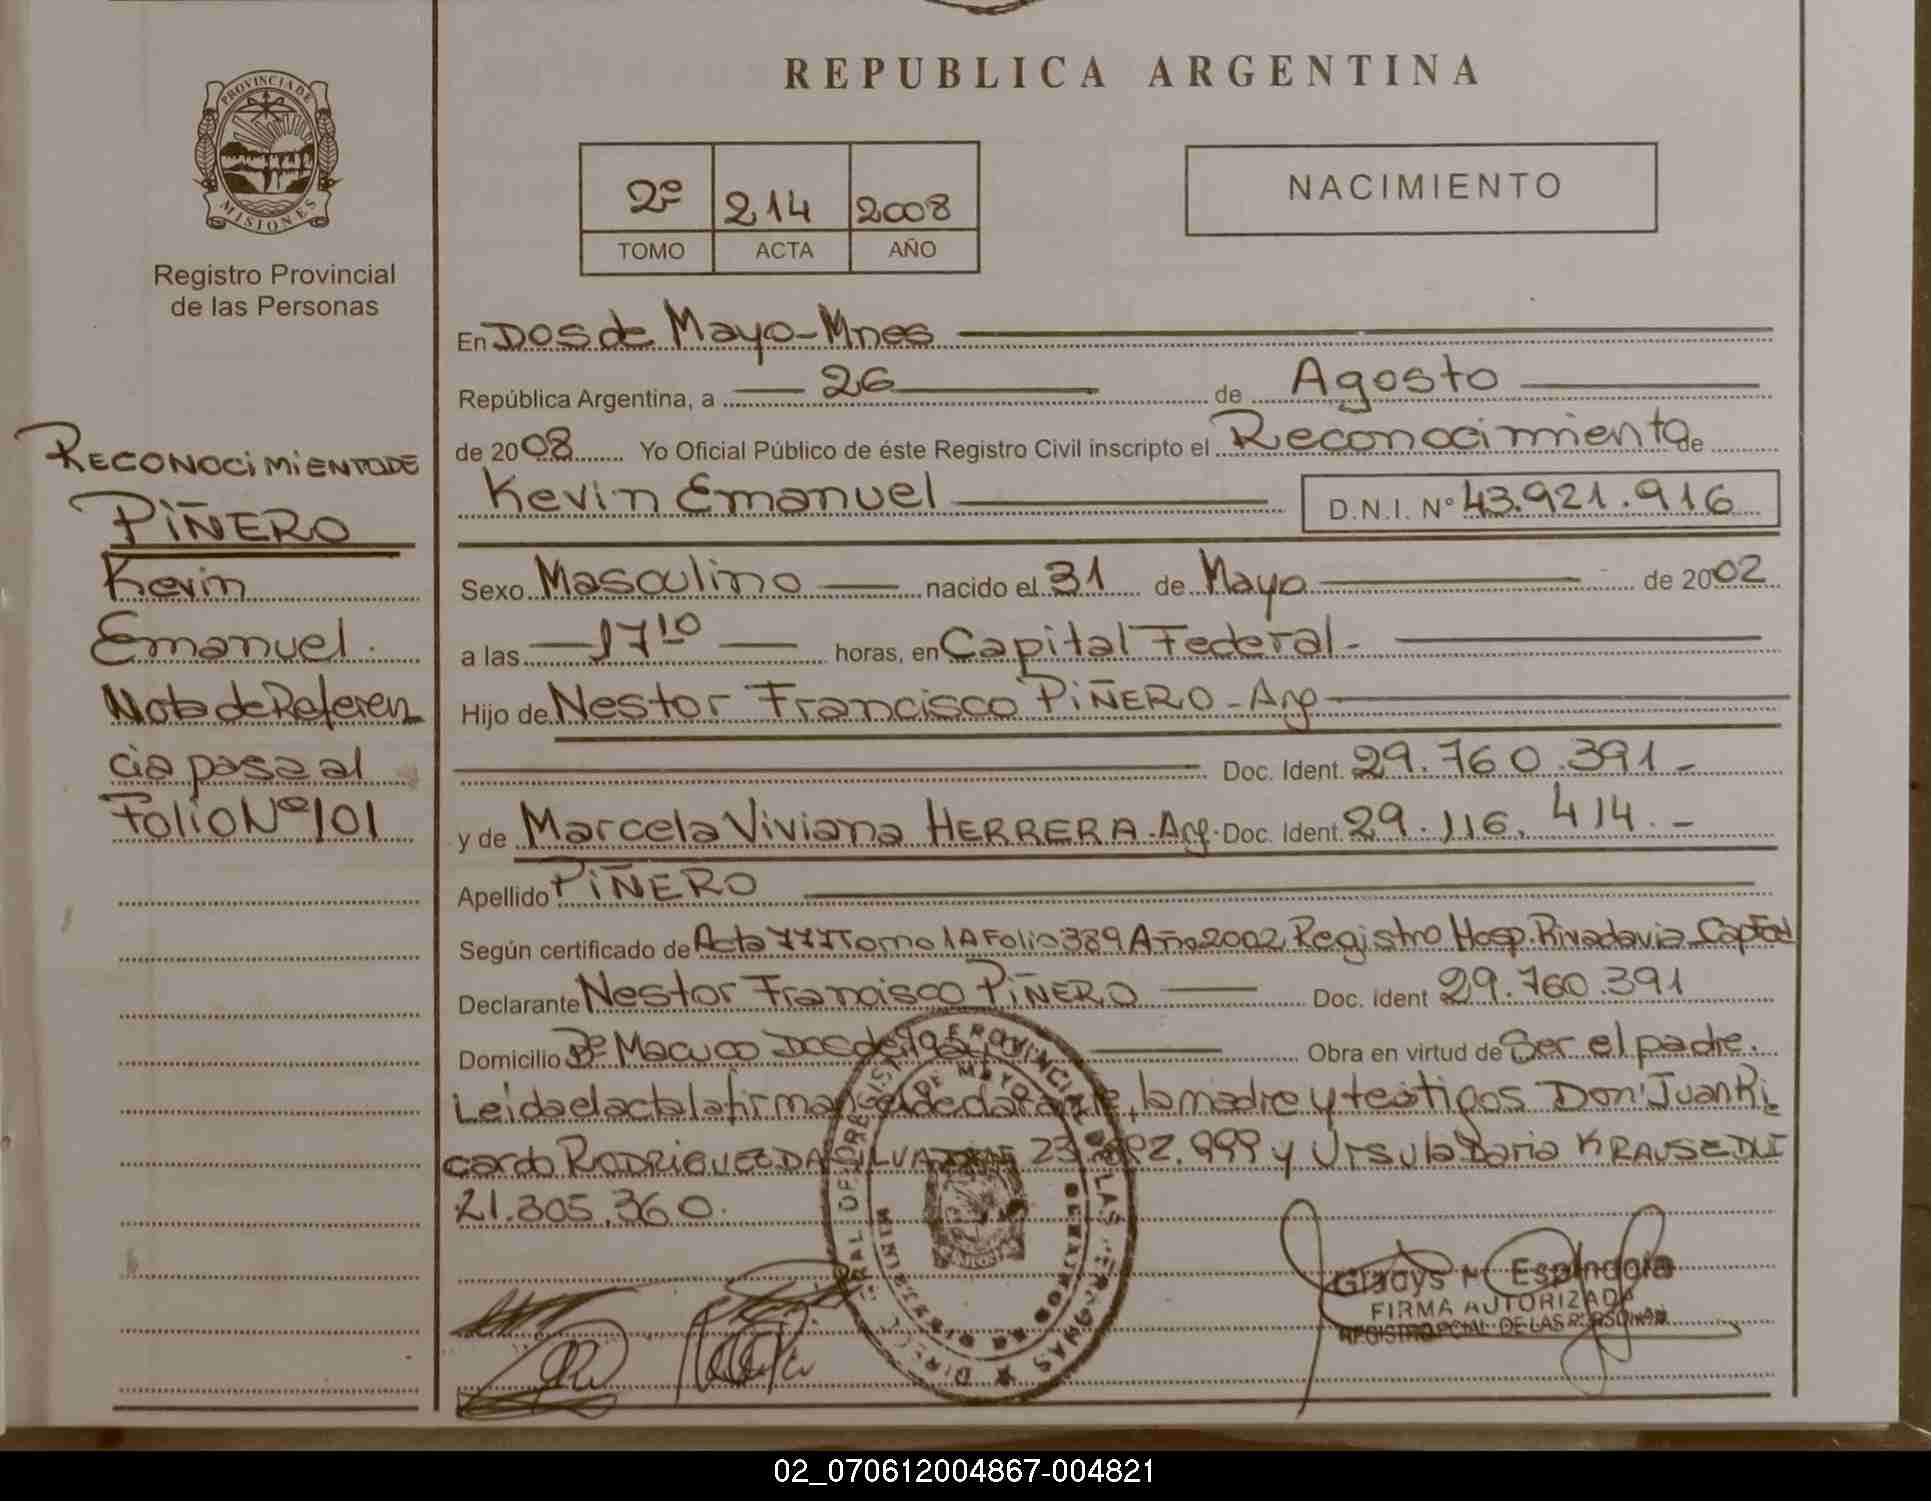 REPUBLICA ARGENTINA
PROVINCIA DE
MISIONES
Registro Provincial
de las Personas
2º 214 2008
TOMO ACTA AÑO
NACIMIENTO
RECONOCIMIENTO DE
PIÑERO
Kevin
Emanuel.
Nota de Referen
cia pasa al
Folio Nº 101
En Dos de Mayo - Mnes
República Argentina, a 26 de Agosto
de 2008 Yo Oficial Público de éste Registro Civil inscripto el Reconocimiento de
Kevin Emanuel D.N.I. Nº 43.921.916
Sexo Masculino nacido el 31 de Mayo de 2002
a las 17 10 horas, en Capital Federal -
Hijo de Nestor Francisco PIÑERO - Arg
Doc. Ident. 29.760.391 -
y de Marcela Viviana HERRERA - Arg. Doc. Ident. 29.116.414. -
Apellido PIÑERO
Según certificado de Acta 777 Tomo 1A Folio 389 Año 2002 Registro Hosp. Rivadavia Cap Fed
Declarante Nestor Francisco PIÑERO Doc. Ident 29.760.391
Domicilio Bº Macuco Dos de Mayo Obra en virtud de Ser el padre.
Leida el acta la firman el declarante, la madre y testigos Don Juan Ri
cardo RODRIGUEZ DA SILVA 23. 999 y Ursula Daria KRAUSE DNI
21.305.360.
Gladys Espindola
FIRMA AUTORIZADA
REGISTRO PCIAL DE LAS PERSONAS
02_070612004867-004821